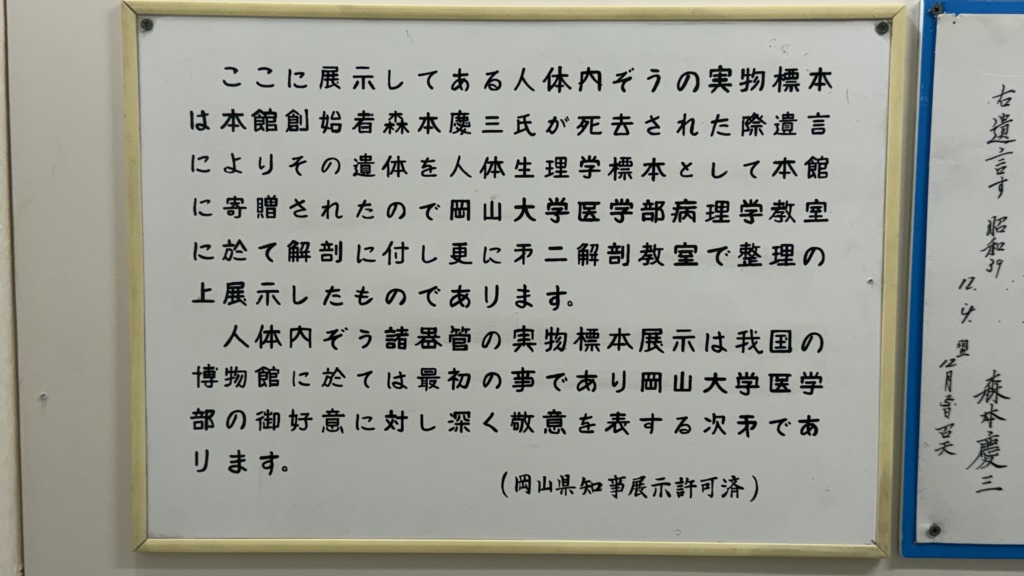 ここに展示してある人体内ぞうの実物標本
は本館創始者森本慶三氏が死去された際遺言
によりその遺体を人体生理学標本として本館
に寄贈されたので岡山大学医学部病理学教室
に於て解剖に付し更に㐧二解剖教室で整理の
上展示したものであります。
人体内ぞう諸器管の実物標本展示は我国の
博物館に於ては最初の事であり岡山大学医学
部の御好意に対し深く敬意を表する次㐧であ
ります。
(岡山県知事展示許可済)
右遺言す 昭和39
12.4.
森本慶三